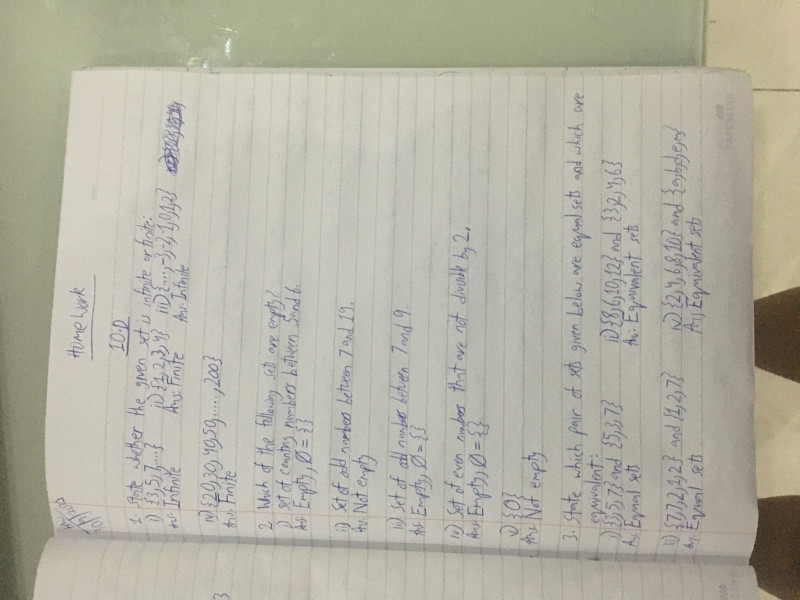 Home Work
10.D
1. State whether the given set is infinite or finite:
i) {3,5,7,...} ii) {1,2,3,4} iii) {...,-3,-2,-1,0,1,2}
Ans: Infinite Ans: Finite Ans: Infinite
iv) {20,30,40,50,......,200}
Ans: Finite
2. Which of the following sets are empty?
i) Set of counting numbers between 5 and 6.
Ans: Empty, Ø = {}
ii) Set of odd numbers between 7 and 19.
Ans: Not empty
iii) Set of odd numbers between 7 and 9.
Ans: Empty, Ø = {}
iv) Set of even numbers that are not divisible by 2.
Ans: Empty, Ø = {}
v) {0}
Ans: Not empty
3. State which pair of sets given below are equal sets and which are
equivalent:
i) {3,5,7} and {5,3,7} ii) {8,6,10,12} and {3,2,4,6}
Ans: Equal sets Ans: Equivalent sets
iii) {7,7,2,1,2} and {1,2,7} iv) {2,4,6,8,10} and
Ans: Equal sets Ans: Equivalent sets